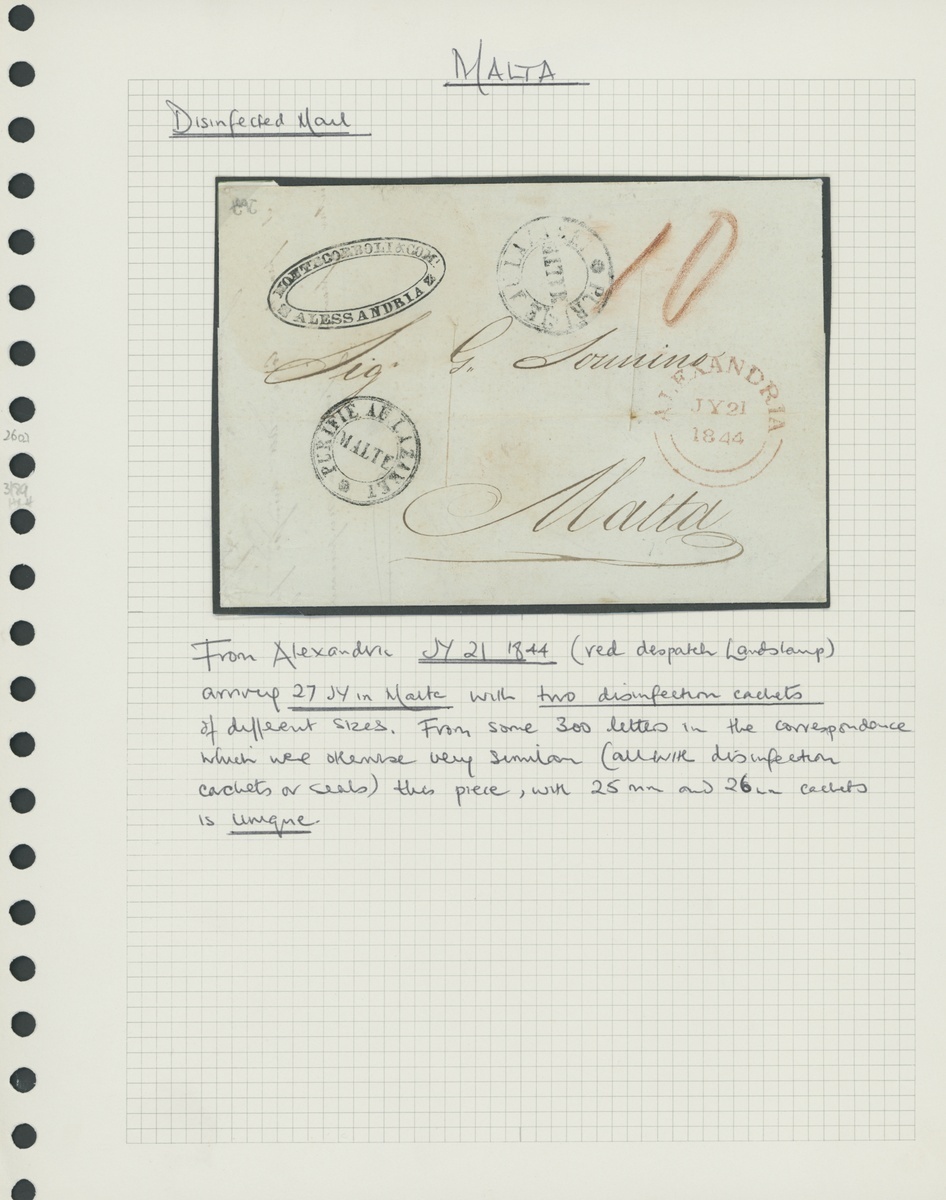 MALTA
Disinfected Mail
MONTECORBOLI & COM:
ALESSANDRIA
PURIFIE AU LAZARET
MALTE
10
Sig G. Sonnino
ALEXANDRIA
JY 21
1844
PURIFIE AU LAZARET
MALTE
Malta
From Alexandria JY 21 1844 (red despatch handstamp)
arriving 27 JY in Malta with two disinfection cachets
of different sizes. From some 300 letters in the correspondence
which were otherwise very similar (all with disinfection
cachets or seals) this piece, with 25mm and 26mm cachets
is unique.